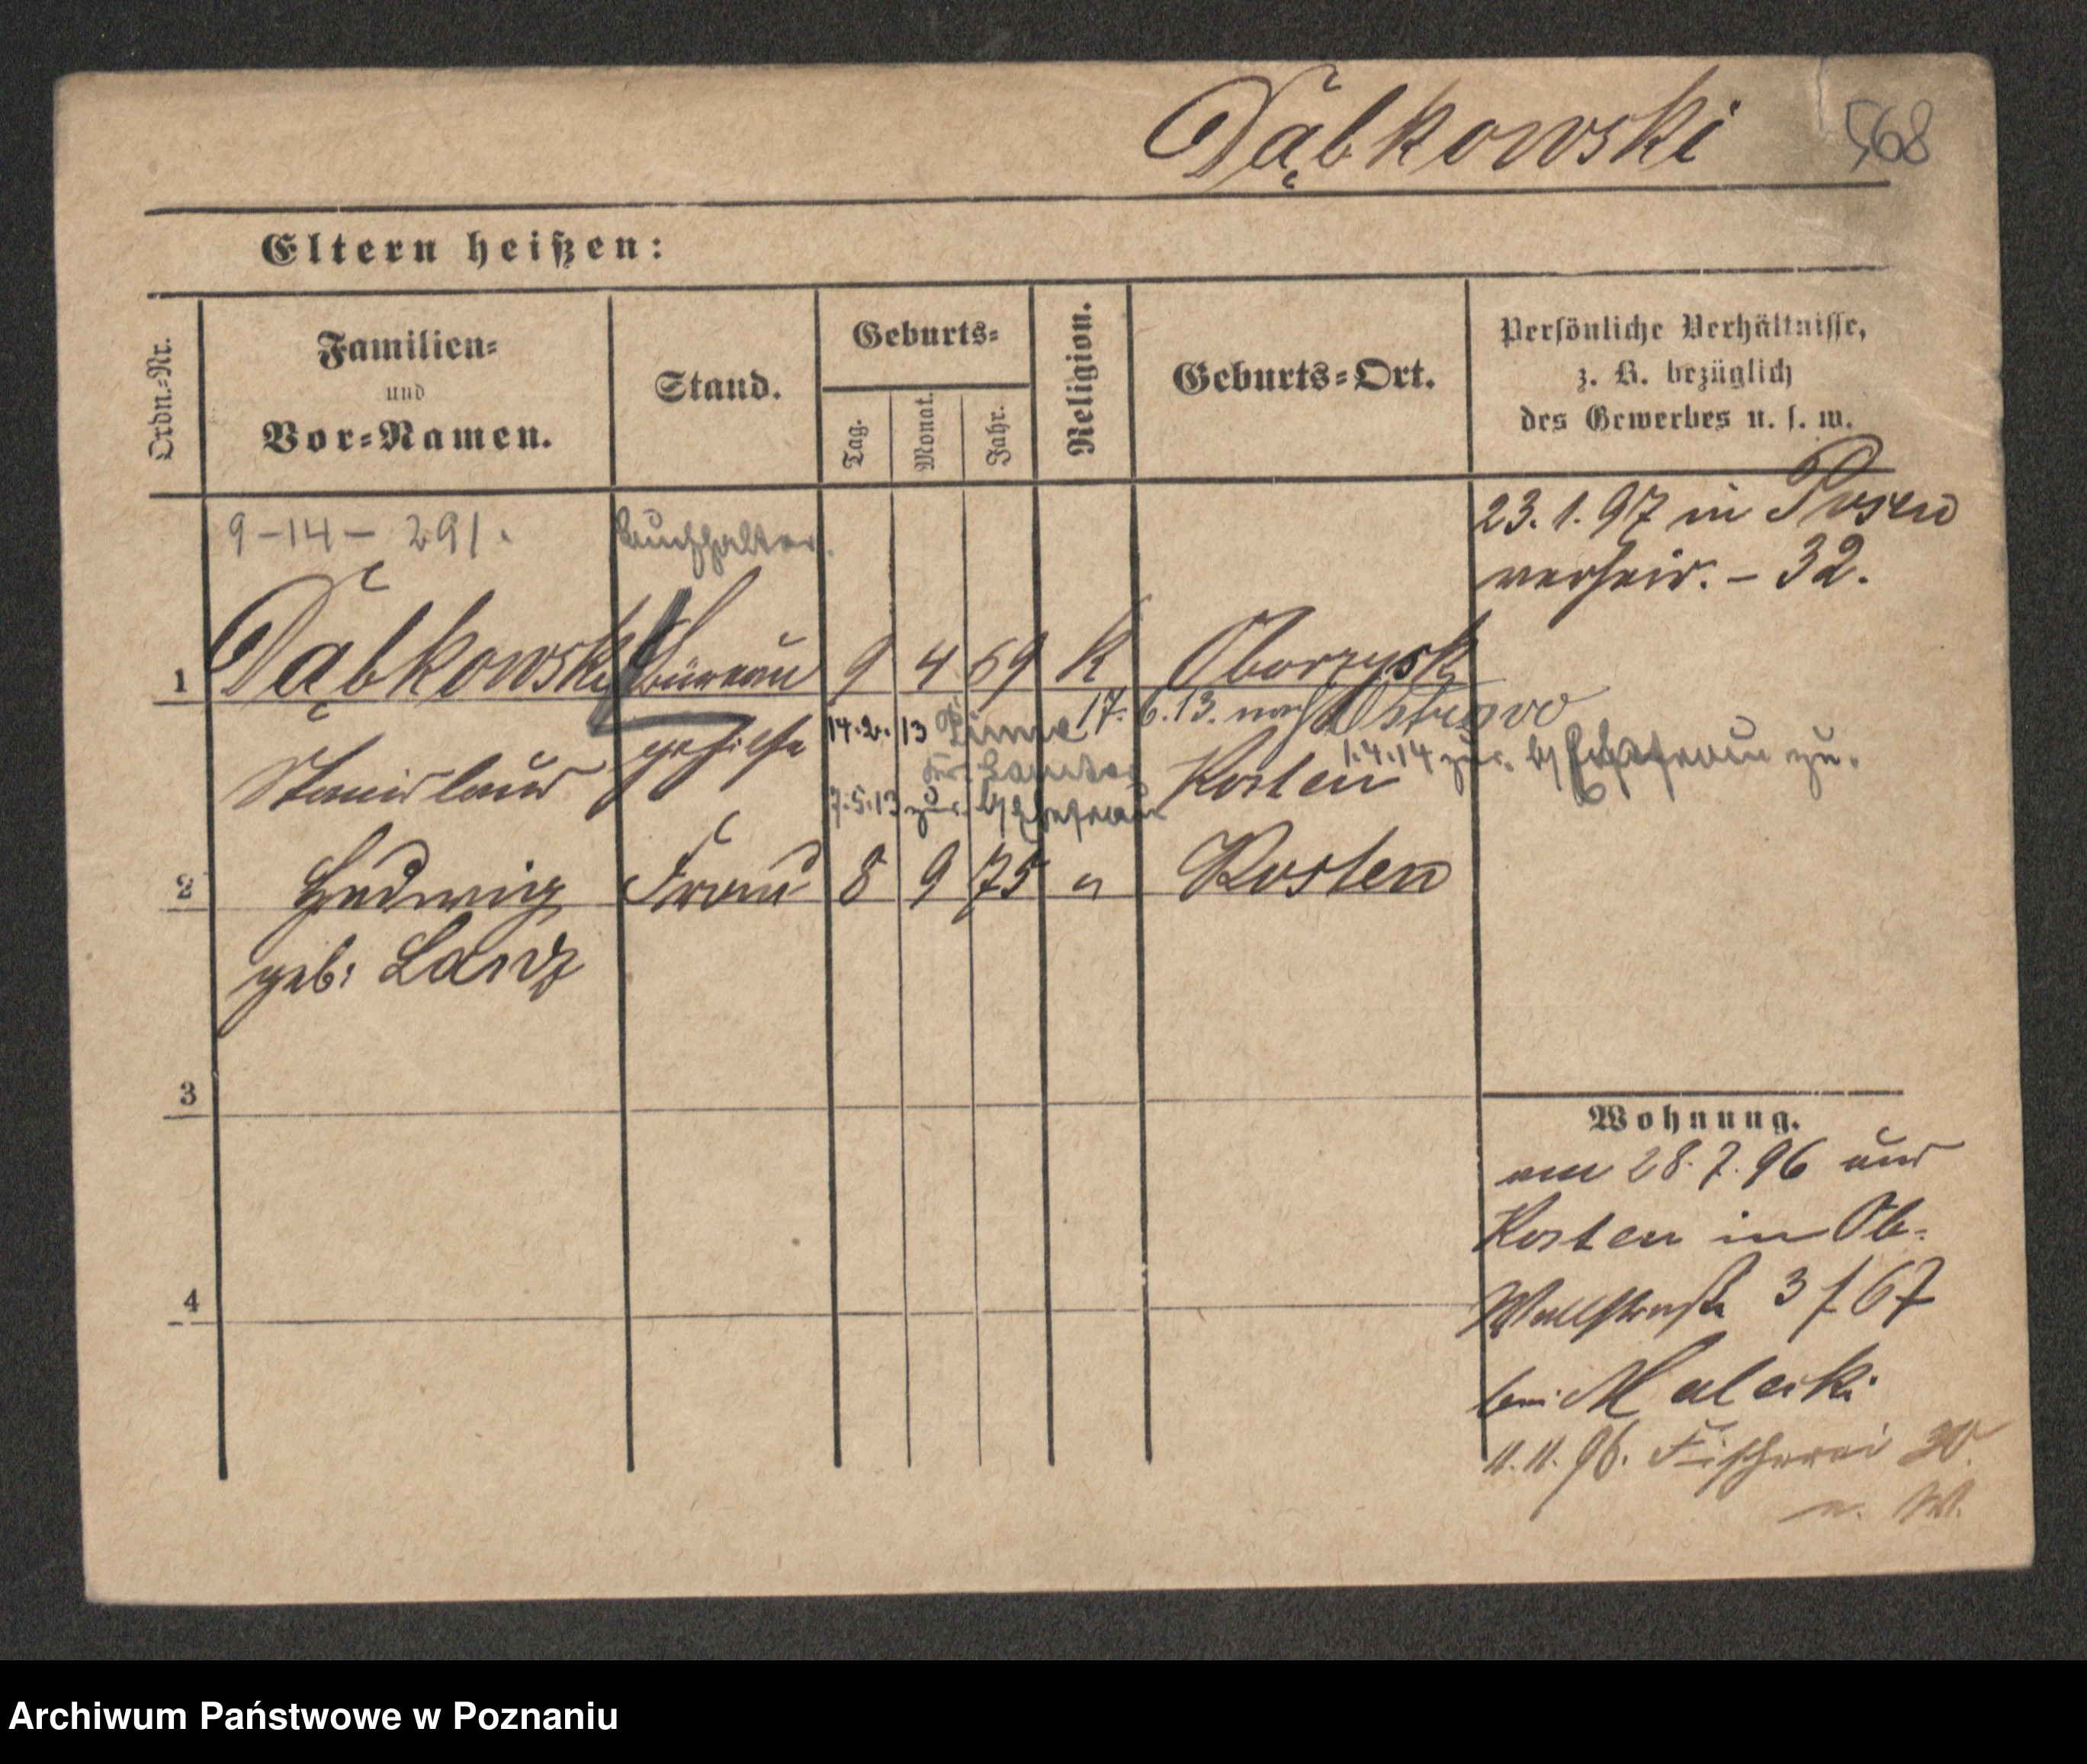 Dąbkowski 568
Eltern heißen:
Ordn.-Nr.
Familien-
und
Vor-Namen.
Stand.
Geburts-
Tag.
Monat.
Jahr.
Religion.
Geburts-Ort.
Persönliche Verhältnisse,
z. B. bezüglich
des Gewerbes u. s. w.
9-14-291.
Buchhalter.
23.1.97 in Posen
verheir. - 32.
1 Dąbkowski Büreau 9 4 69 K Oborzysk
Stanislaus gehilfe Kosten
14.2.13 Pinne
Kr. Samter
7.5.13 zur. Ehefrau
17.6.13. nach Ostrowo
1.4.14 zur. Ehefrau zu.
2 Hedwig Frau 8 9 75 " Kosten
geb: Lanz
3
4
Wohnung.
am 28.7.96 aus
Kosten in Ob-
Wallstraße 3 f 67
bei Malecki
11.11.96. Fischerei 30.
n. W.
Archiwum Państwowe w Poznaniu